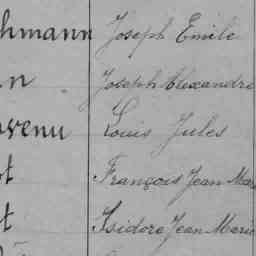 hmann Joseph Emile
n Joseph Alexandre
venu Louis Jules
t François Jean Mar
t Isidore Jean Marie